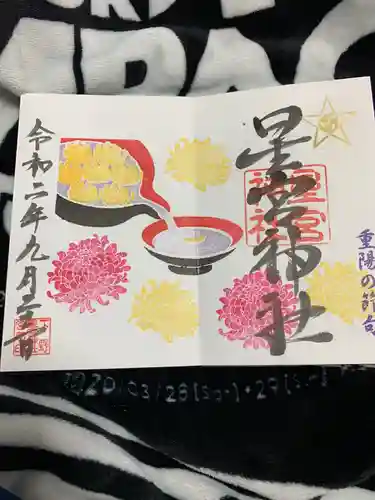 重陽の節句
星宮神社
星宮
神社
令和二年九月
2020/03/28[Sat]・29